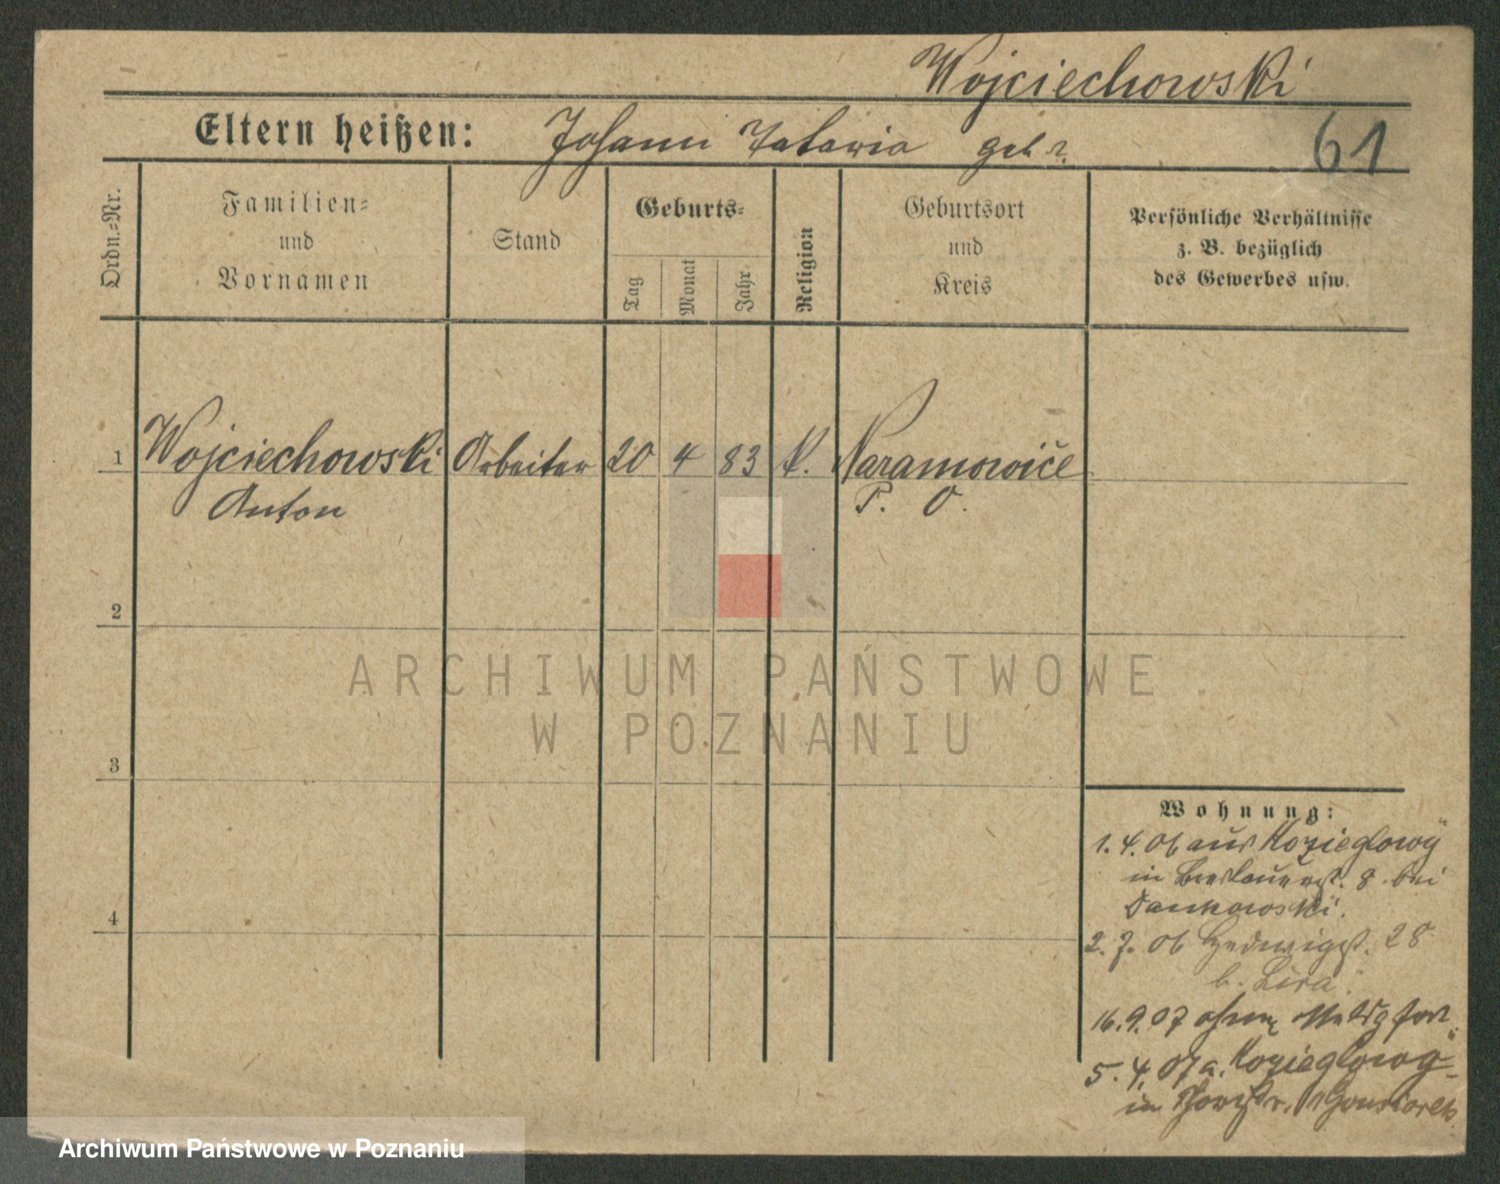 Wojciechowski
Eltern heißen: Johann geb ?
61
Ordn.=Nr.
Familien=
und
Vornamen
Stand
Geburts=
Tag
Monat
Jahr
Religion
Geburtsort
und
Kreis
Persönliche Verhältnisse
z. B. bezüglich
des Gewerbes usw.
1 Wojciechowski Arbeiter 20 4 83 k. Naramowice
Anton P. O.
2
ARCHIWUM PAŃSTWOWE
W POZNANIU
3
Wohnung:
1. 4. 06 aus Kozieglowy
in 8. bei
2. 7. 06 Hedwigst. 28
b. Lisra
16. 9. 07 ohne
5. 4. 07 a. Kozieglowy
in
4
Archiwum Państwowe w Poznaniu